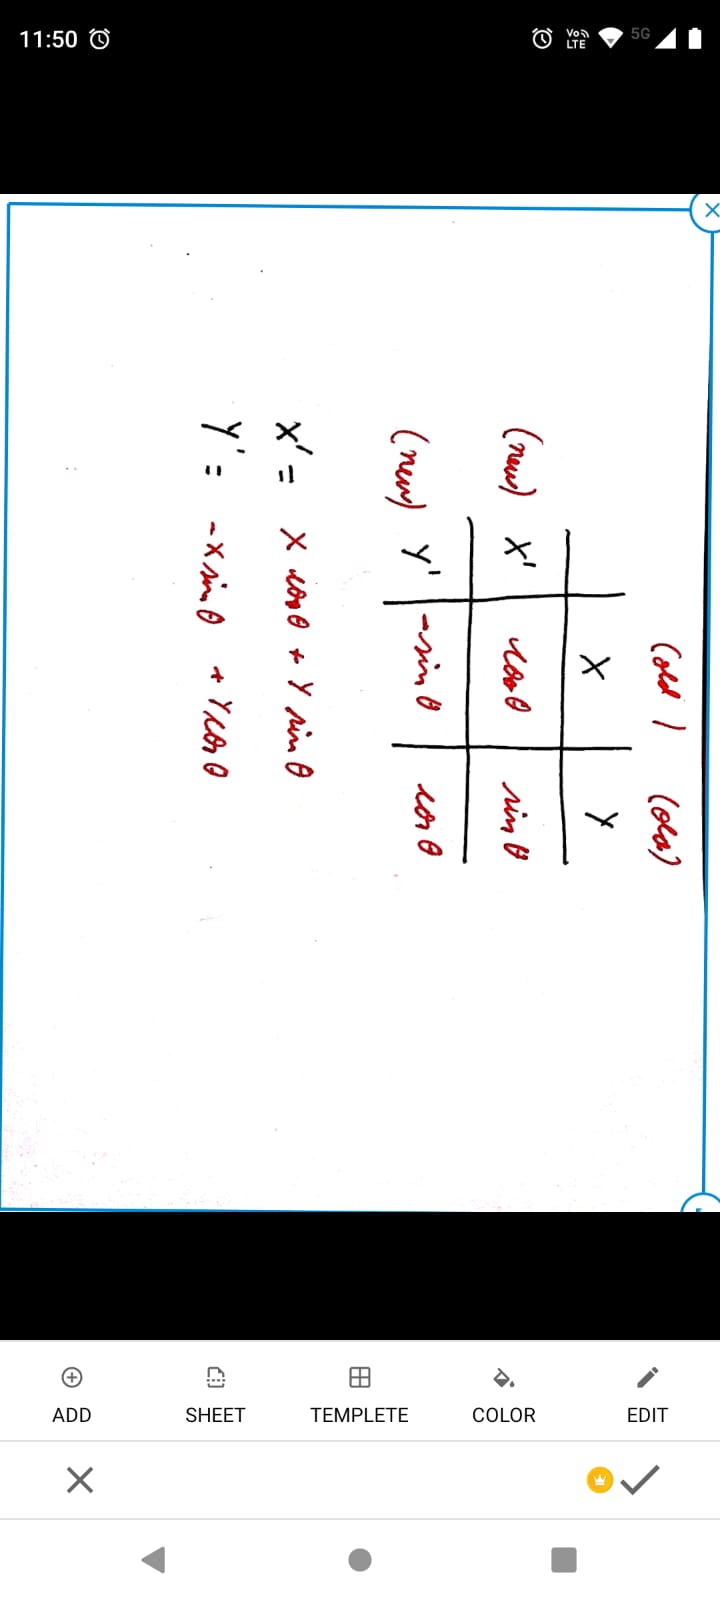 11:50
Vo LTE 5G
(old) (old)
X Y
(new) X' cosθ sinθ
(new) Y' -sinθ cosθ
X' = X cosθ + Y sinθ
Y' = -X sinθ + Y cosθ
ADD SHEET TEMPLETE COLOR EDIT